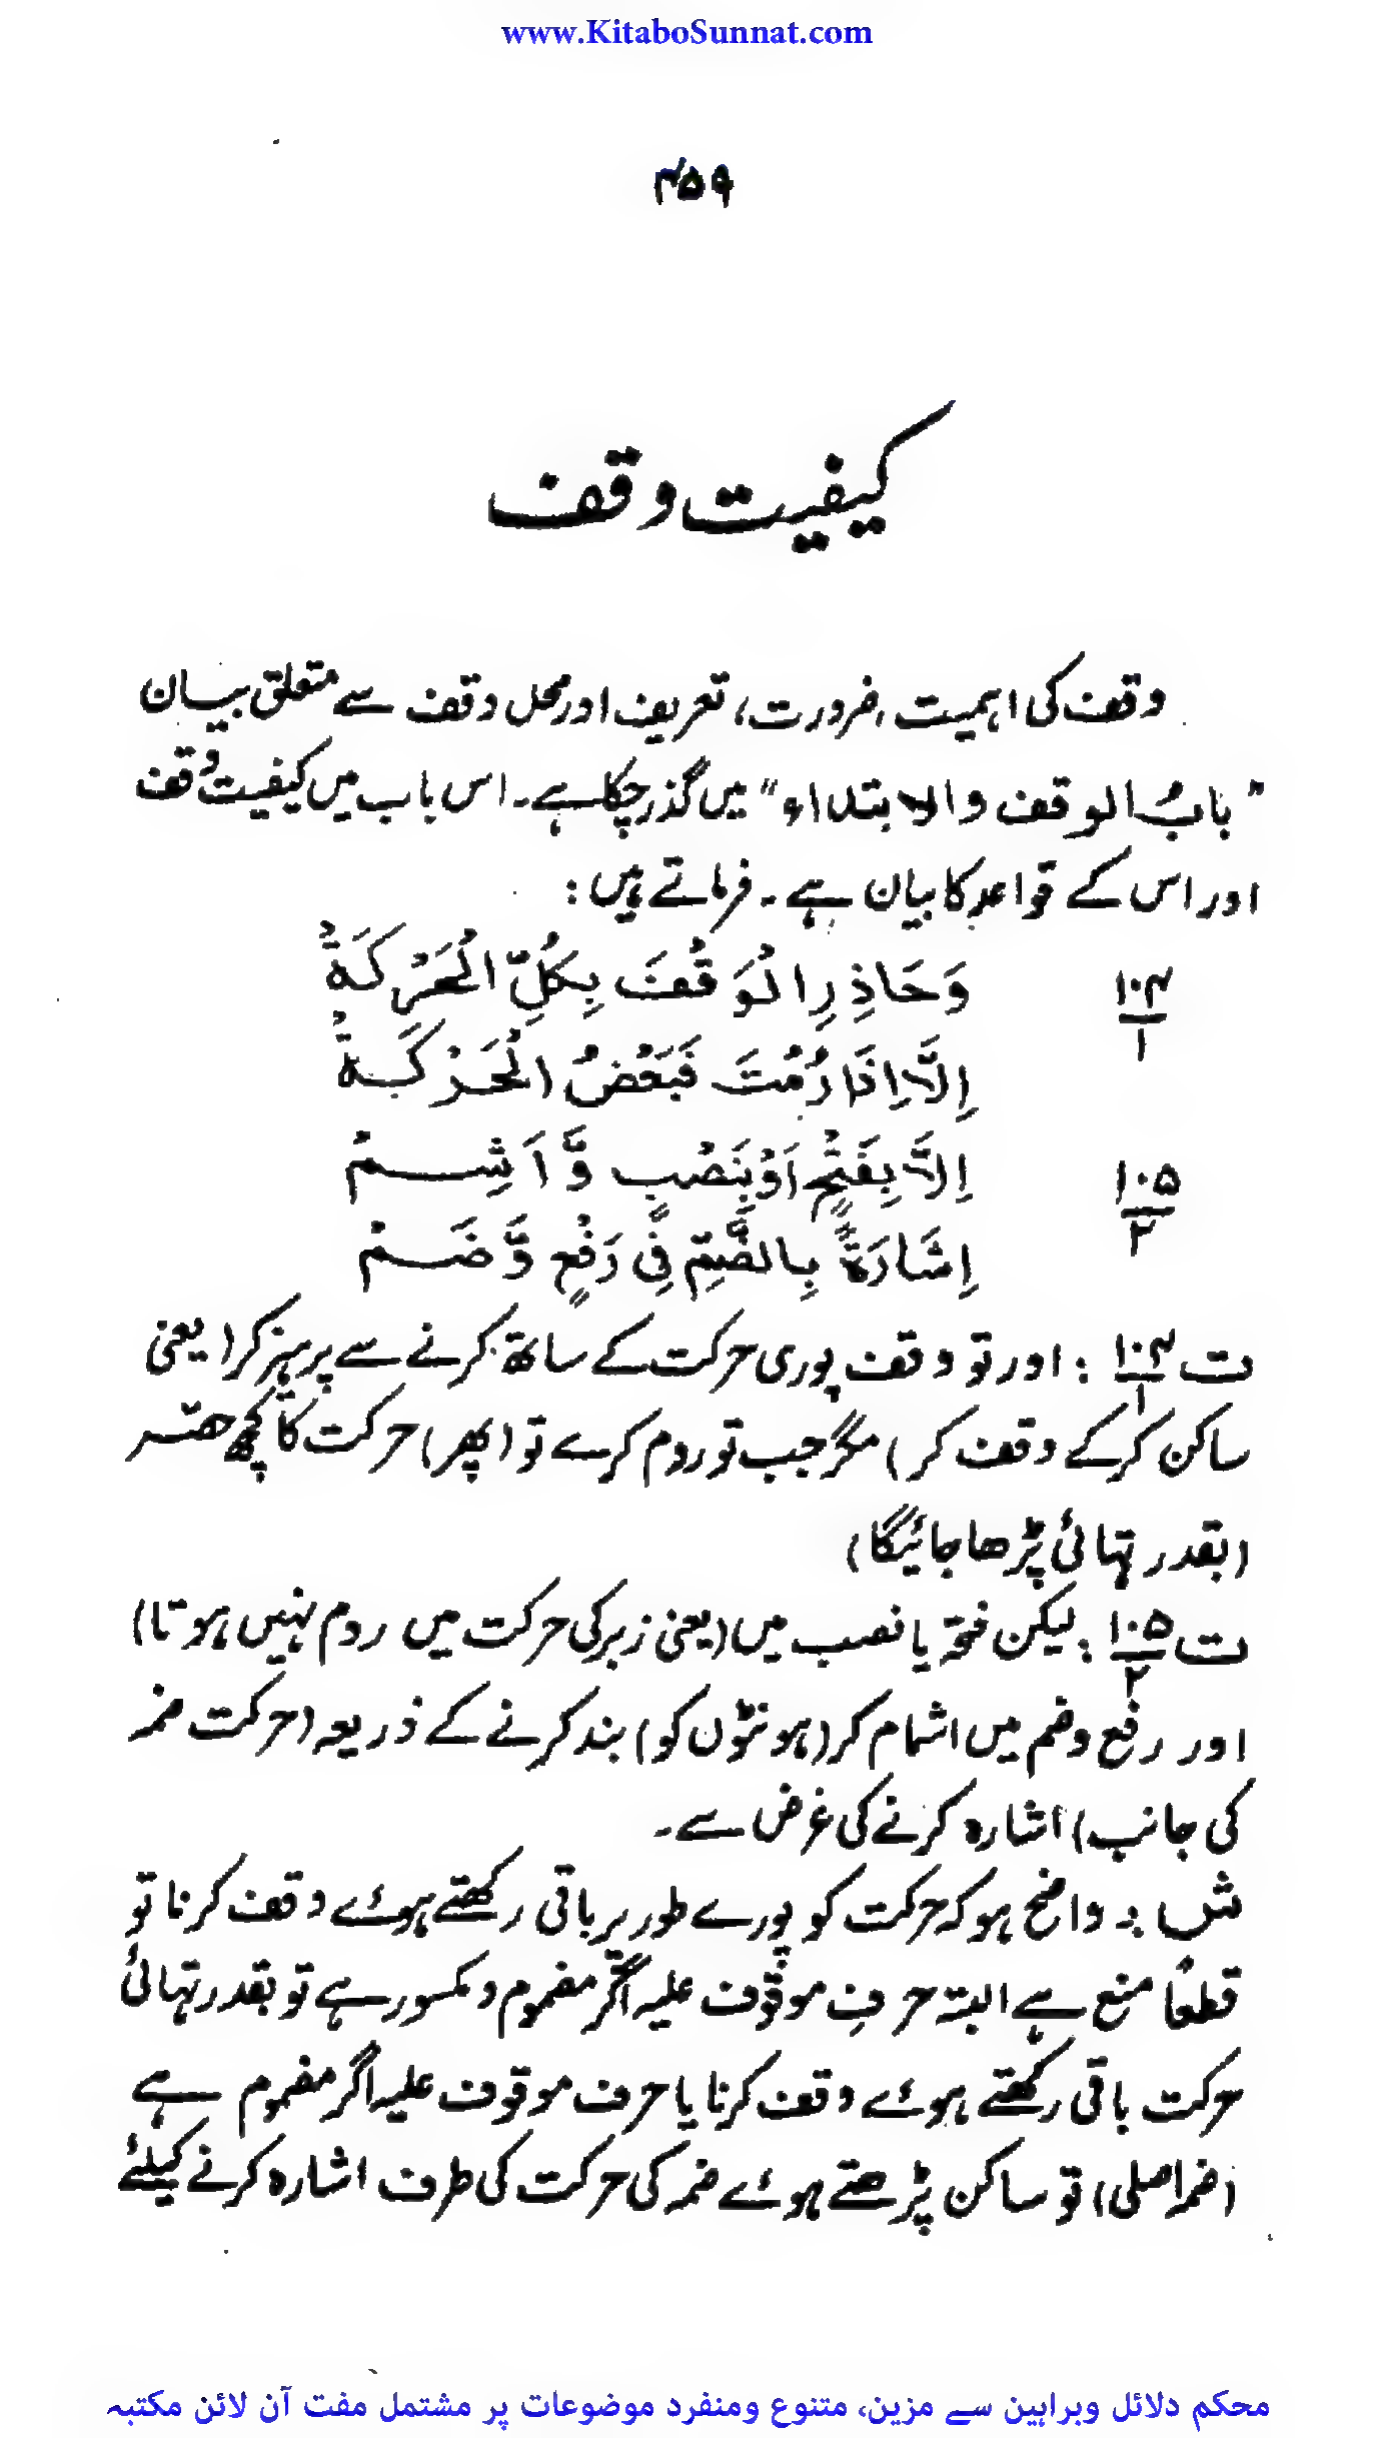 www.KitaboSunnat.com
۴۵۹
کیفیت وقف
وقف کی اہمیت، ضرورت، تعریف اور محل وقف سے متعلق بیان
"بابُ الوقف والابتداء" میں گذر چکا ہے۔ اس باب میں کیفیت وُقف
اور اس کے قواعد کا بیان ہے۔ فرماتے ہیں:
۱۰۴/۱ وَحَاذِرِ الْوَقْفَ بِكُلِّ الْحَرَكَةْ
اِلَّا اِذَا رُمْتَ فَبَعْضُ الْحَرَكَةْ
۱۰۵/۲ اِلَّا بِفَتْحٍ اَوْ بِنَصْبٍ وَّاَشِمْ
اِشَارَةً بِالضَّمِّ فِیْ رَفْعٍ وَّضَمْ
ت ۱۰۴/۱ : اور تو وقف پوری حرکت کے ساتھ کرنے سے پرہیز کر (یعنی
ساکن کرکے وقف کر) مگر جب تو روم کرے تو (پھر) حرکت کا کچھ حصّہ
(بقدر تہائی پڑھا جائیگا)
ت ۱۰۵/۲ : لیکن فتحہ یا نصب میں (یعنی زبر کی حرکت میں روم نہیں ہوتا)
اور رفع وضم میں اشمام کر (ہونٹوں کو) بند کرنے کے ذریعہ (حرکت ضمہ
کی جانب) اشارہ کرنے کی غرض سے۔
ش :۔ واضح ہو کہ حرکت کو پورے طور پر باقی رکھتے ہوئے وقف کرنا تو
قطعًا منع ہے البتہ حرفِ موقوف علیہ اگر مضموم و مکسور ہے تو بقدر تہائی
حرکت باقی رکھتے ہوئے وقف کرنا یا حرف موقوف علیہ اگر مضموم ہے
(ضمہ اصلی) تو ساکن پڑھتے ہوئے ضمہ کی حرکت کی طرف اشارہ کرنے کیلئے
محکم دلائل وبراہین سے مزین، متنوع ومنفرد موضوعات پر مشتمل مفت آن لائن مکتبہ